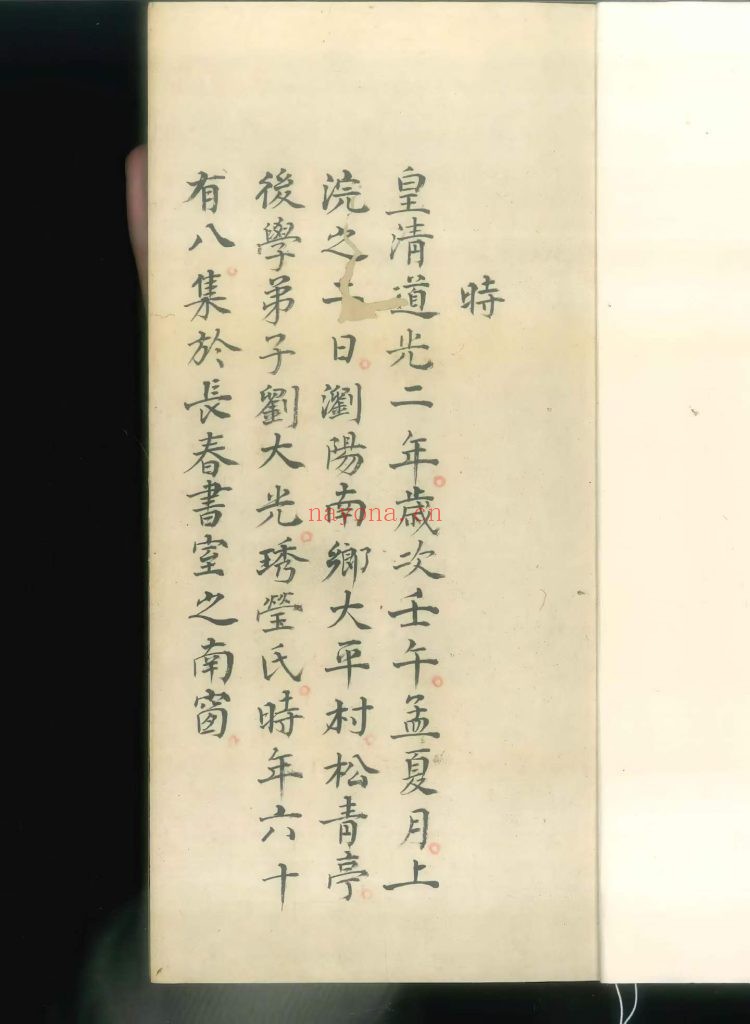 時
皇清道光二年歲次壬午孟夏月上
浣之日瀏陽南鄉大平村松青亭
後學弟子劉大光琇瑩氏時年六十
有八集於長春書室之南窗
nayona.cn